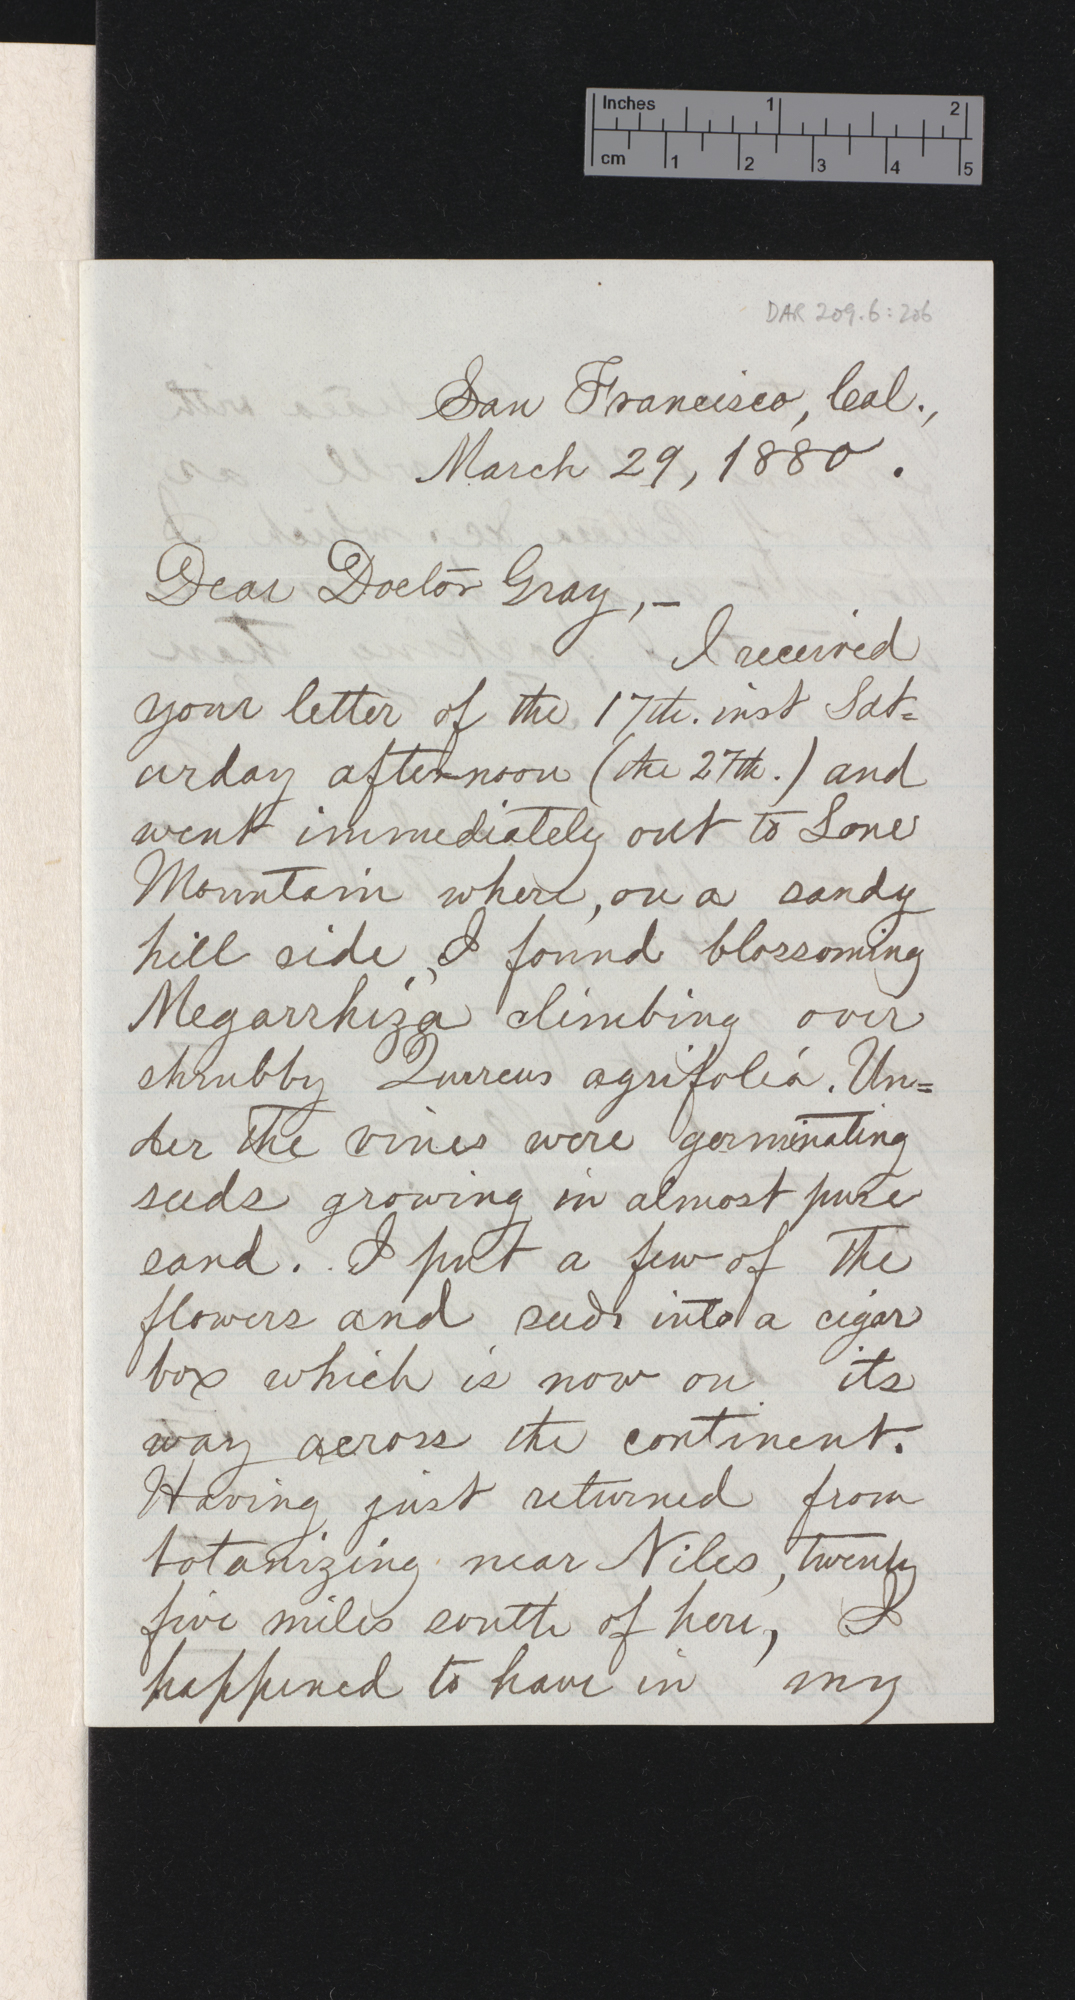 Inches 1 2
cm 1 2 3 4 5
DAR 209.6:206
San Francisco, Cal.,
March 29, 1880.
Dear Doctor Gray,—
I received
your letter of the 17th. inst Sat=
urday afternoon (the 27th.) and
went immediately out to Lone
Mountain where, on a sandy
hill side, I found blossoming
Megarrhiza climbing over
shrubby Quercus agrifolia. Un=
der the vines were germinating
seeds growing in almost pure
sand. I put a few of the
flowers and seeds into a cigar
box which is now on its
way across the continent.
Having just returned from
botanizing near Niles, twenty
five miles south of here, I
happened to have in my